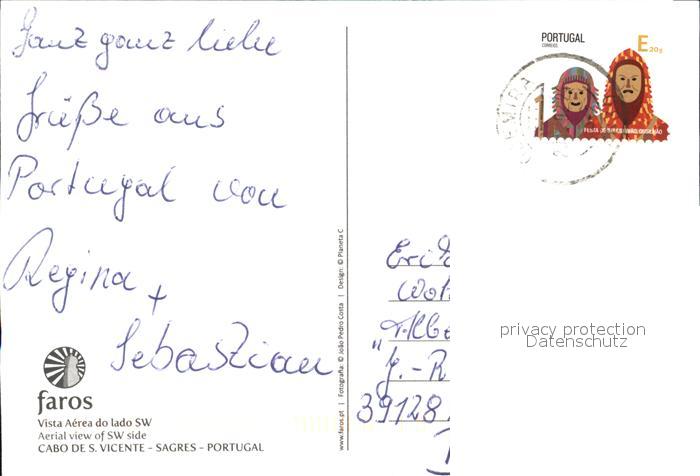 Ganz ganz liebe
Grüße aus
Portugal von
Regina +
Sebastian
faros
Vista Aérea do lado SW
Aerial view of SW side
CABO DE S. VICENTE – SAGRES – PORTUGAL
www.faros.pt | Fotografia: © João Pedro Costa | Design: © Planeta C
PORTUGAL
CORREIOS
E20g
39128
privacy protection
Datenschutz